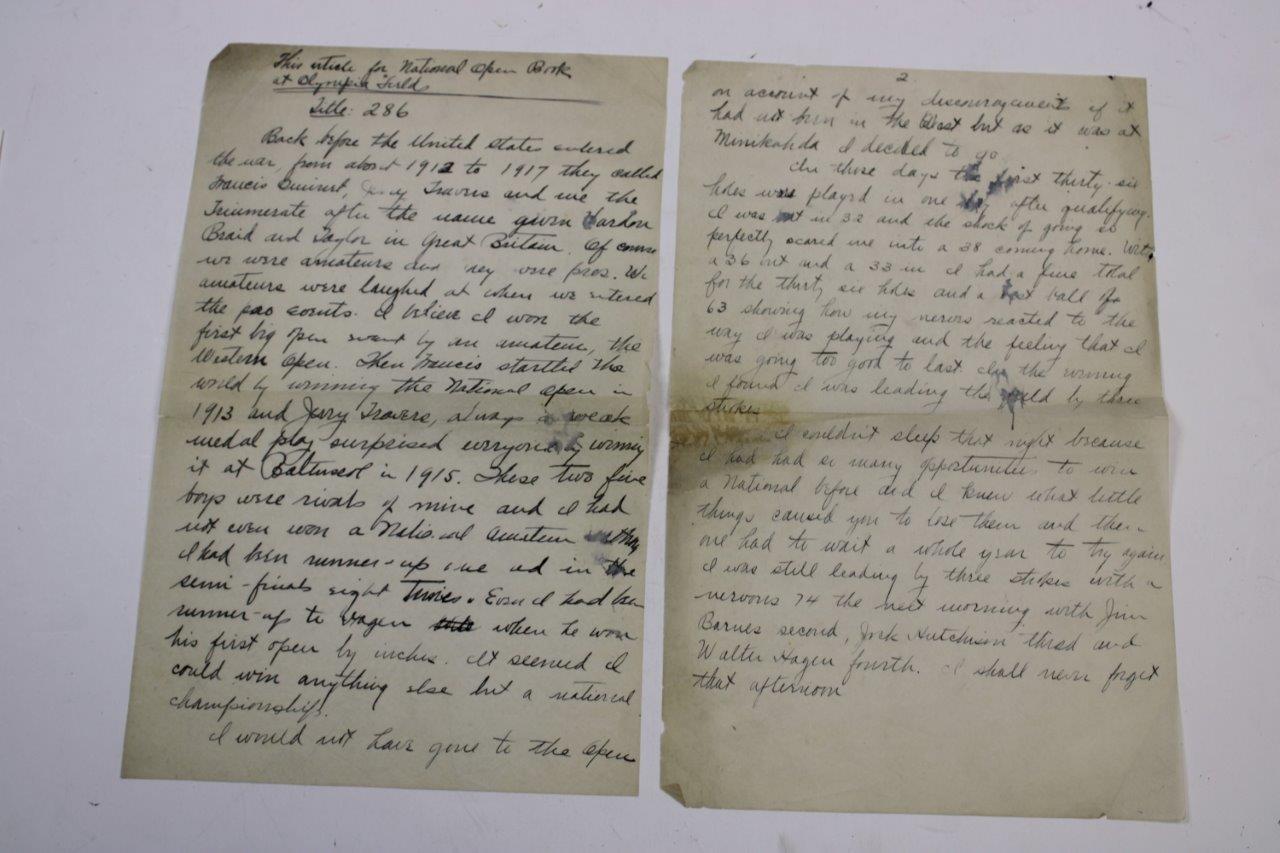 This article for National Open Book
at Olympia Fields
Title: 286
Back before the United States entered
the war, from about 1912 to 1917 they called
Francis Ouimet, Jerry Travers and me the
Triumerate after the name given Vardon
Braid and Taylor in Great Britain. Of course
we were amateurs and they were pros. We
amateurs were laughed at when we entered
the pro events. I believe I won the
first big open event by an amateur, the
Western Open. Then Francis startled the
world by winning the National Open in
1913 and Jerry Travers, always a weak
medal play surprised everyone by winning
it at Baltusrol in 1915. These two fine
boys were rivals of mine and I had
not even won a National Amateur
I had been runner-up once and in the
semi-finals eight Times. Even I had been
runner-up to Hagen when he won
his first open by inches. It seemed I
could win anything else but a national
championship.
I would not have gone to the Open
2
on account of my discouragement if it
had not been in the West but as it was at
Minikahda I decided to go
In those days the first thirty-six
holes were played in one day after qualifying.
I was out in 32 and the shock of going so
perfectly scared me into a 38 coming home. With
a 36 out and a 33 in I had a fine total
for the thirty six holes and a best ball of
63 showing how my nerves reacted to the
way I was playing and the feeling that I
was going too good to last. In the evening
I found I was leading the field by three
strokes
I couldn't sleep that night because
I had had so many opportunities to win
a National before and I knew what little
things caused you to lose them and then
one had to wait a whole year to try again.
I was still leading by three strokes with a
nervous 74 the next morning with Jim
Barnes second, Jock Hutchison third and
Walter Hagen fourth. I shall never forget
that afternoon